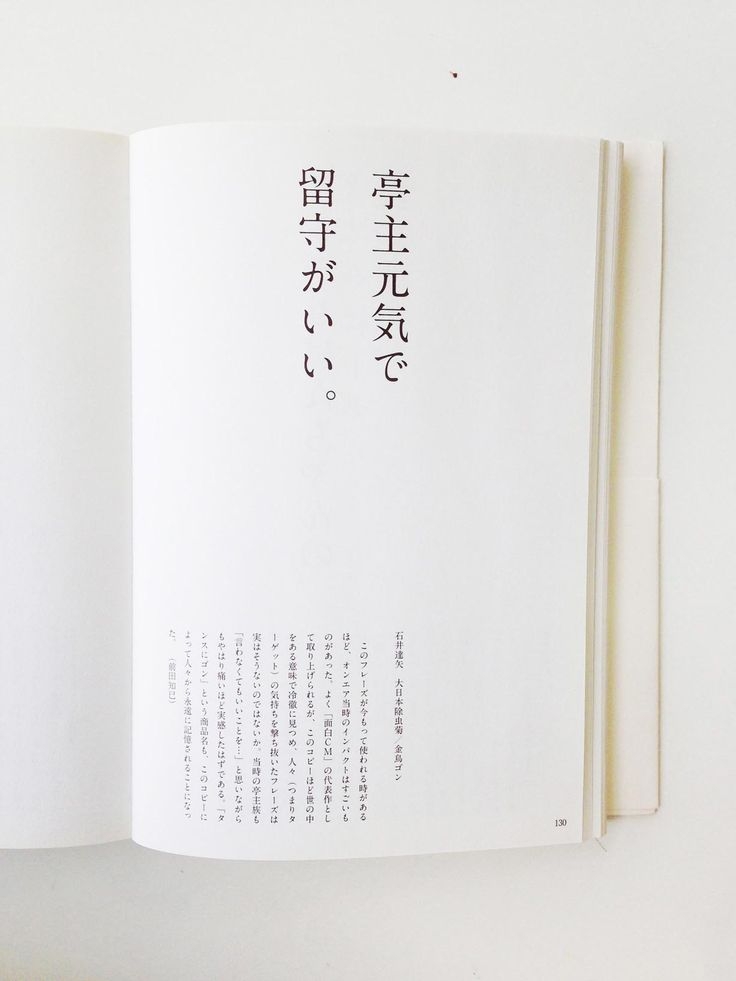 亭主元気で
留守がいい。
石井達矢　大日本除虫菊／金鳥ゴン
　このフレーズが今もって使われる時がある
ほど、オンエア当時のインパクトはすごいも
のがあった。よく「面白CM」の代表作とし
て取り上げられるが、このコピーほど世の中
をある意味で冷徹に見つめ、人々（つまりタ
ーゲット）の気持ちを撃ち抜いたフレーズは
実はそうないのではないか。当時の亭主族も
「言わなくてもいいことを…」と思いながら
もやはり痛いほど実感したはずである。「タ
ンスにゴン」という商品名も、このコピーに
よって人々から永遠に記憶されることになっ
た。　（前田知巳）
130